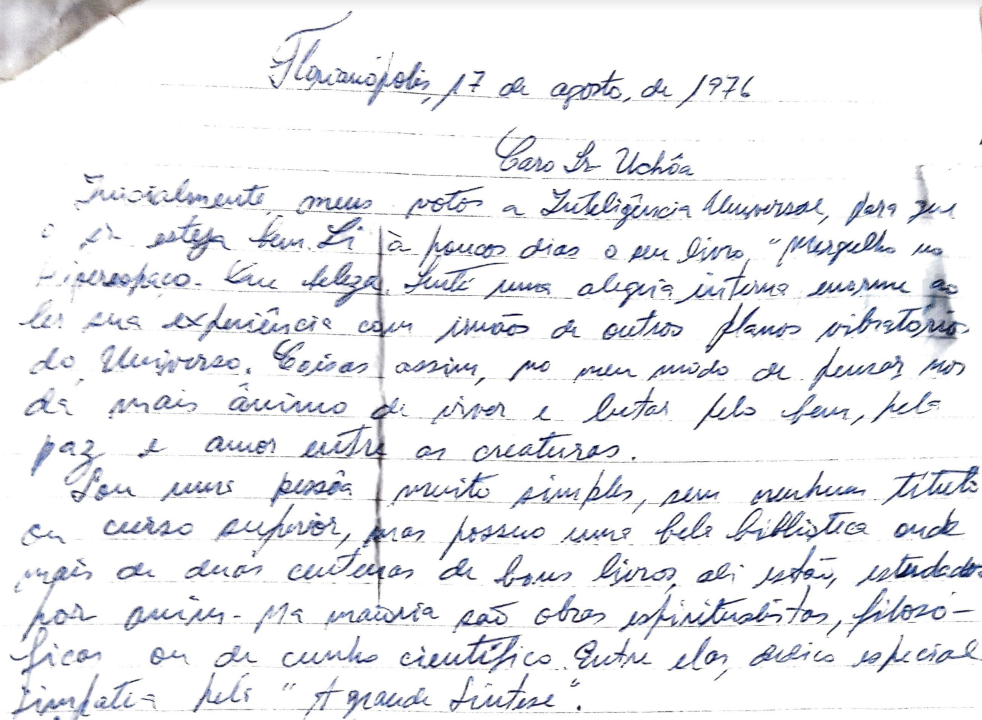 Florianópolis, 17 de agosto, de 1976
Caro Sr Uchôa
Inicialmente, meus votos a Inteligência Universal, para que
o sr. esteja bem. Li à poucos dias o seu livro, "Mergulho no
Hiperespaço. Que beleza. Senti uma alegria interna enorme ao
ler sua experiência com irmãos de outros planos vibratórios
do Universo. Coisas assim, no meu modo de pensar, nos
dá mais ânimo de viver e lutar pelo bem, pela
paz e amor entre as creaturas.
Sou uma pessôa muito simples, sem nenhum titulo
ou curso superior, mas possuo uma bela biblioteca onde
mais de duas centenas de bons livros, ali estão, estudados
por mim. Na maioria são obras espiritualistas, filosó-
ficas ou de cunho científico. Entre elas, dedico especial
simpatia pela "A grande Síntese".